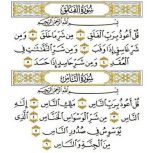 سُورَةُ الْفَلَقِ
بِسْمِ اللَّهِ الرَّحْمَٰنِ الرَّحِيمِ
قُلْ أَعُوذُ بِرَبِّ الْفَلَقِ مِن شَرِّ مَا خَلَقَ وَمِن
شَرِّ غَاسِقٍ إِذَا وَقَبَ وَمِن شَرِّ النَّفَّٰثَٰتِ فِي
الْعُقَدِ وَمِن شَرِّ حَاسِدٍ إِذَا حَسَدَ
سُورَةُ النَّاسِ
بِسْمِ اللَّهِ الرَّحْمَٰنِ الرَّحِيمِ
قُلْ أَعُوذُ بِرَبِّ النَّاسِ مَلِكِ النَّاسِ إِلَٰهِ
النَّاسِ مِن شَرِّ الْوَسْوَاسِ الْخَنَّاسِ الَّذِي
يُوَسْوِسُ فِي صُدُورِ النَّاسِ
مِنَ الْجِنَّةِ وَالنَّاسِ